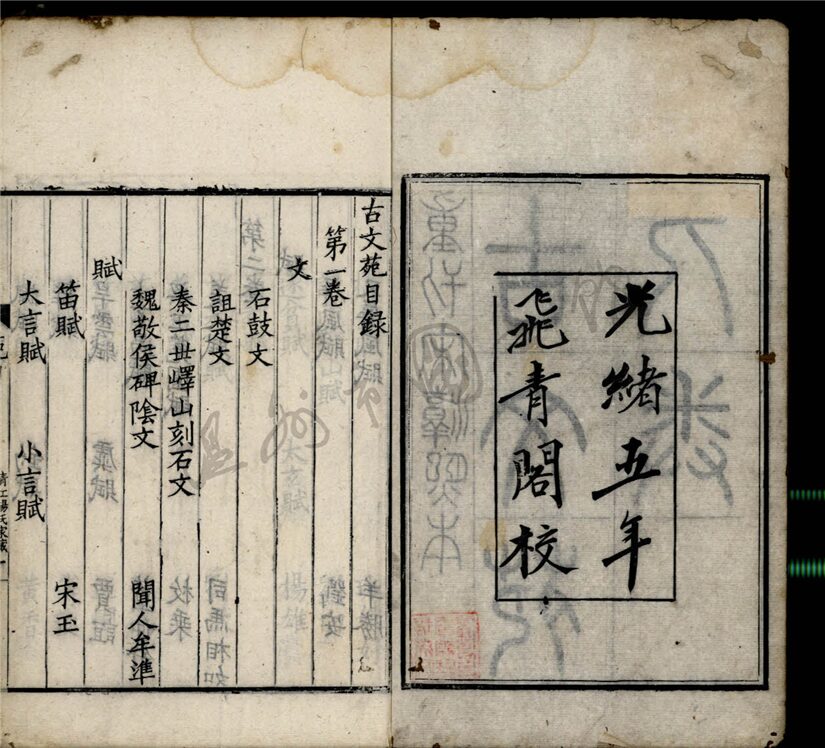 光緒五年
飛青閣校
古文苑目録
第一卷
文
石鼓文
詛楚文
秦二世嶧山刻石文
魏敬侯碑陰文 聞人牟準
賦
笛賦 宋玉
大言賦 小言賦